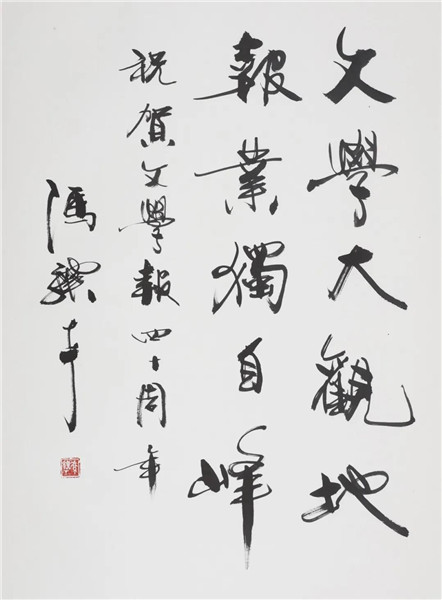 文學大觀地
報業獨自峰
祝賀文學報四十周年
馮驥才